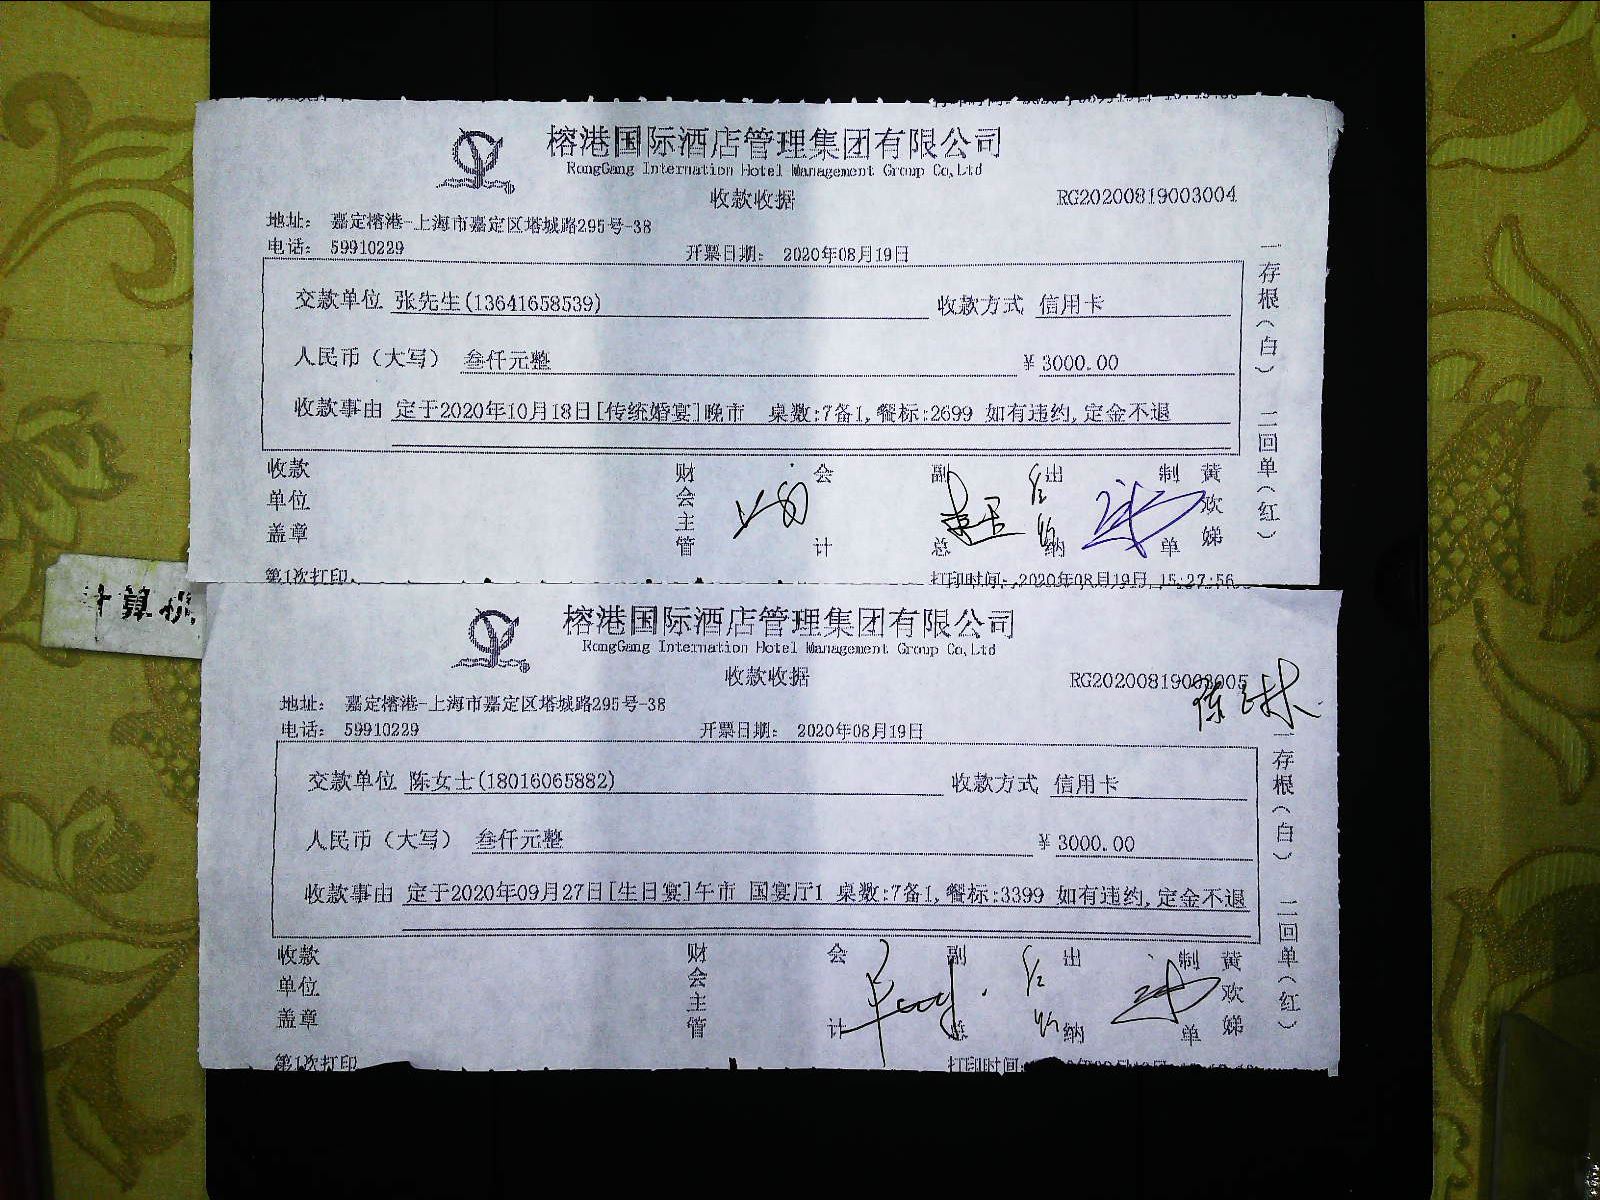 榕港国际酒店管理集团有限公司
RongGang Internation Hotel Management Group Co,Ltd
收款收据 RG20200819003004
地址： 嘉定榕港-上海市嘉定区塔城路295号-38
电话： 59910229 开票日期： 2020年08月19日
交款单位 张先生(13641658539) 收款方式 信用卡
人民币（大写） 叁仟元整 ¥3000.00
收款事由 定于2020年10月18日[传统婚宴]晚市 桌数:7备1,餐标:2699 如有违约,定金不退
一存根（白） 二回单（红）
收款单位盖章 财会主管 会计 副总 出纳 制单 黄欢娣
第1次打印 打印时间：2020年08月19日 15:27:56
计算机
榕港国际酒店管理集团有限公司
RongGang Internation Hotel Management Group Co,Ltd
收款收据 RG20200819003005
地址： 嘉定榕港-上海市嘉定区塔城路295号-38
电话： 59910229 开票日期： 2020年08月19日
交款单位 陈女士(18016065882) 收款方式 信用卡
人民币（大写） 叁仟元整 ¥3000.00
收款事由 定于2020年09月27日[生日宴]午市 国宴厅1 桌数:7备1,餐标:3399 如有违约,定金不退
一存根（白） 二回单（红）
收款单位盖章 财会主管 会计 副总 出纳 制单 黄欢娣
第1次打印 打印时间：